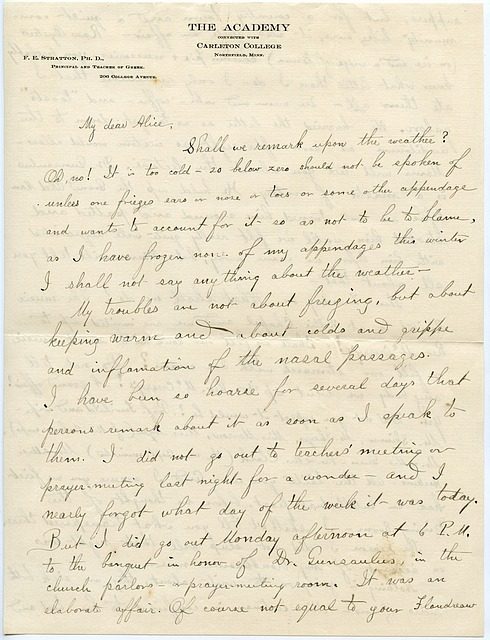 THE ACADEMY
CONNECTED WITH
CARLETON COLLEGE
NORTHFIELD, MINN.
F. E. STRATTON, PH. D.,
PRINCIPAL AND TEACHER OF GREEK.
206 COLLEGE AVENUE.
My dear Alice,
Shall we remark upon the weather?
Oh, no! It is too cold – 20 below zero should not be spoken of
unless one friezes ears or nose or toes or some other appendage
and wants to account for it so as not to be to blame,
as I have frozen none of my appendages this winter
I shall not say anything about the weather –
My troubles are not about friezing, but about
keeping warm and about colds and grippe
and inflamation of the nasal passages.
I have been so hoarse for several days that
persons remark about it as soon as I speak to
them. I did not go out to teachers' meeting or
prayer-meeting last night – for a wonder – and I
nearly forgot what day of the week it was today.
But I did go out Monday afternoon at 6 P.M.
to the banquet in honor of Dr. Gunsaulus, in the
church parlors – & prayer-meeting room. It was an
elaborate affair. Of course not equal to your Flandreau